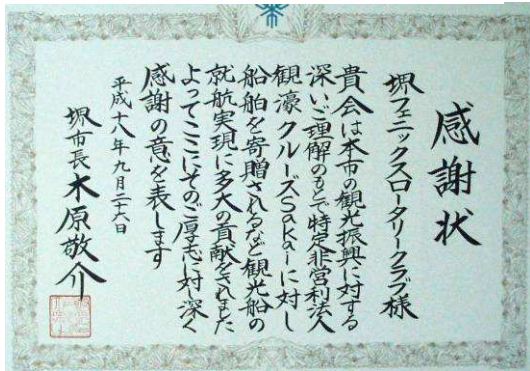 感謝状
堺フェニックスロータリークラブ様
貴会は本市の観光振興に対する
深いご理解のもとで特定非営利法人
観濠クルーズSakaiに対し
船舶を寄贈されるなど観光船の
就航実現に多大の貢献をされました
よってここにそのご厚志に対し深く
感謝の意を表します
平成十八年九月二六日
堺市長 木原敬介